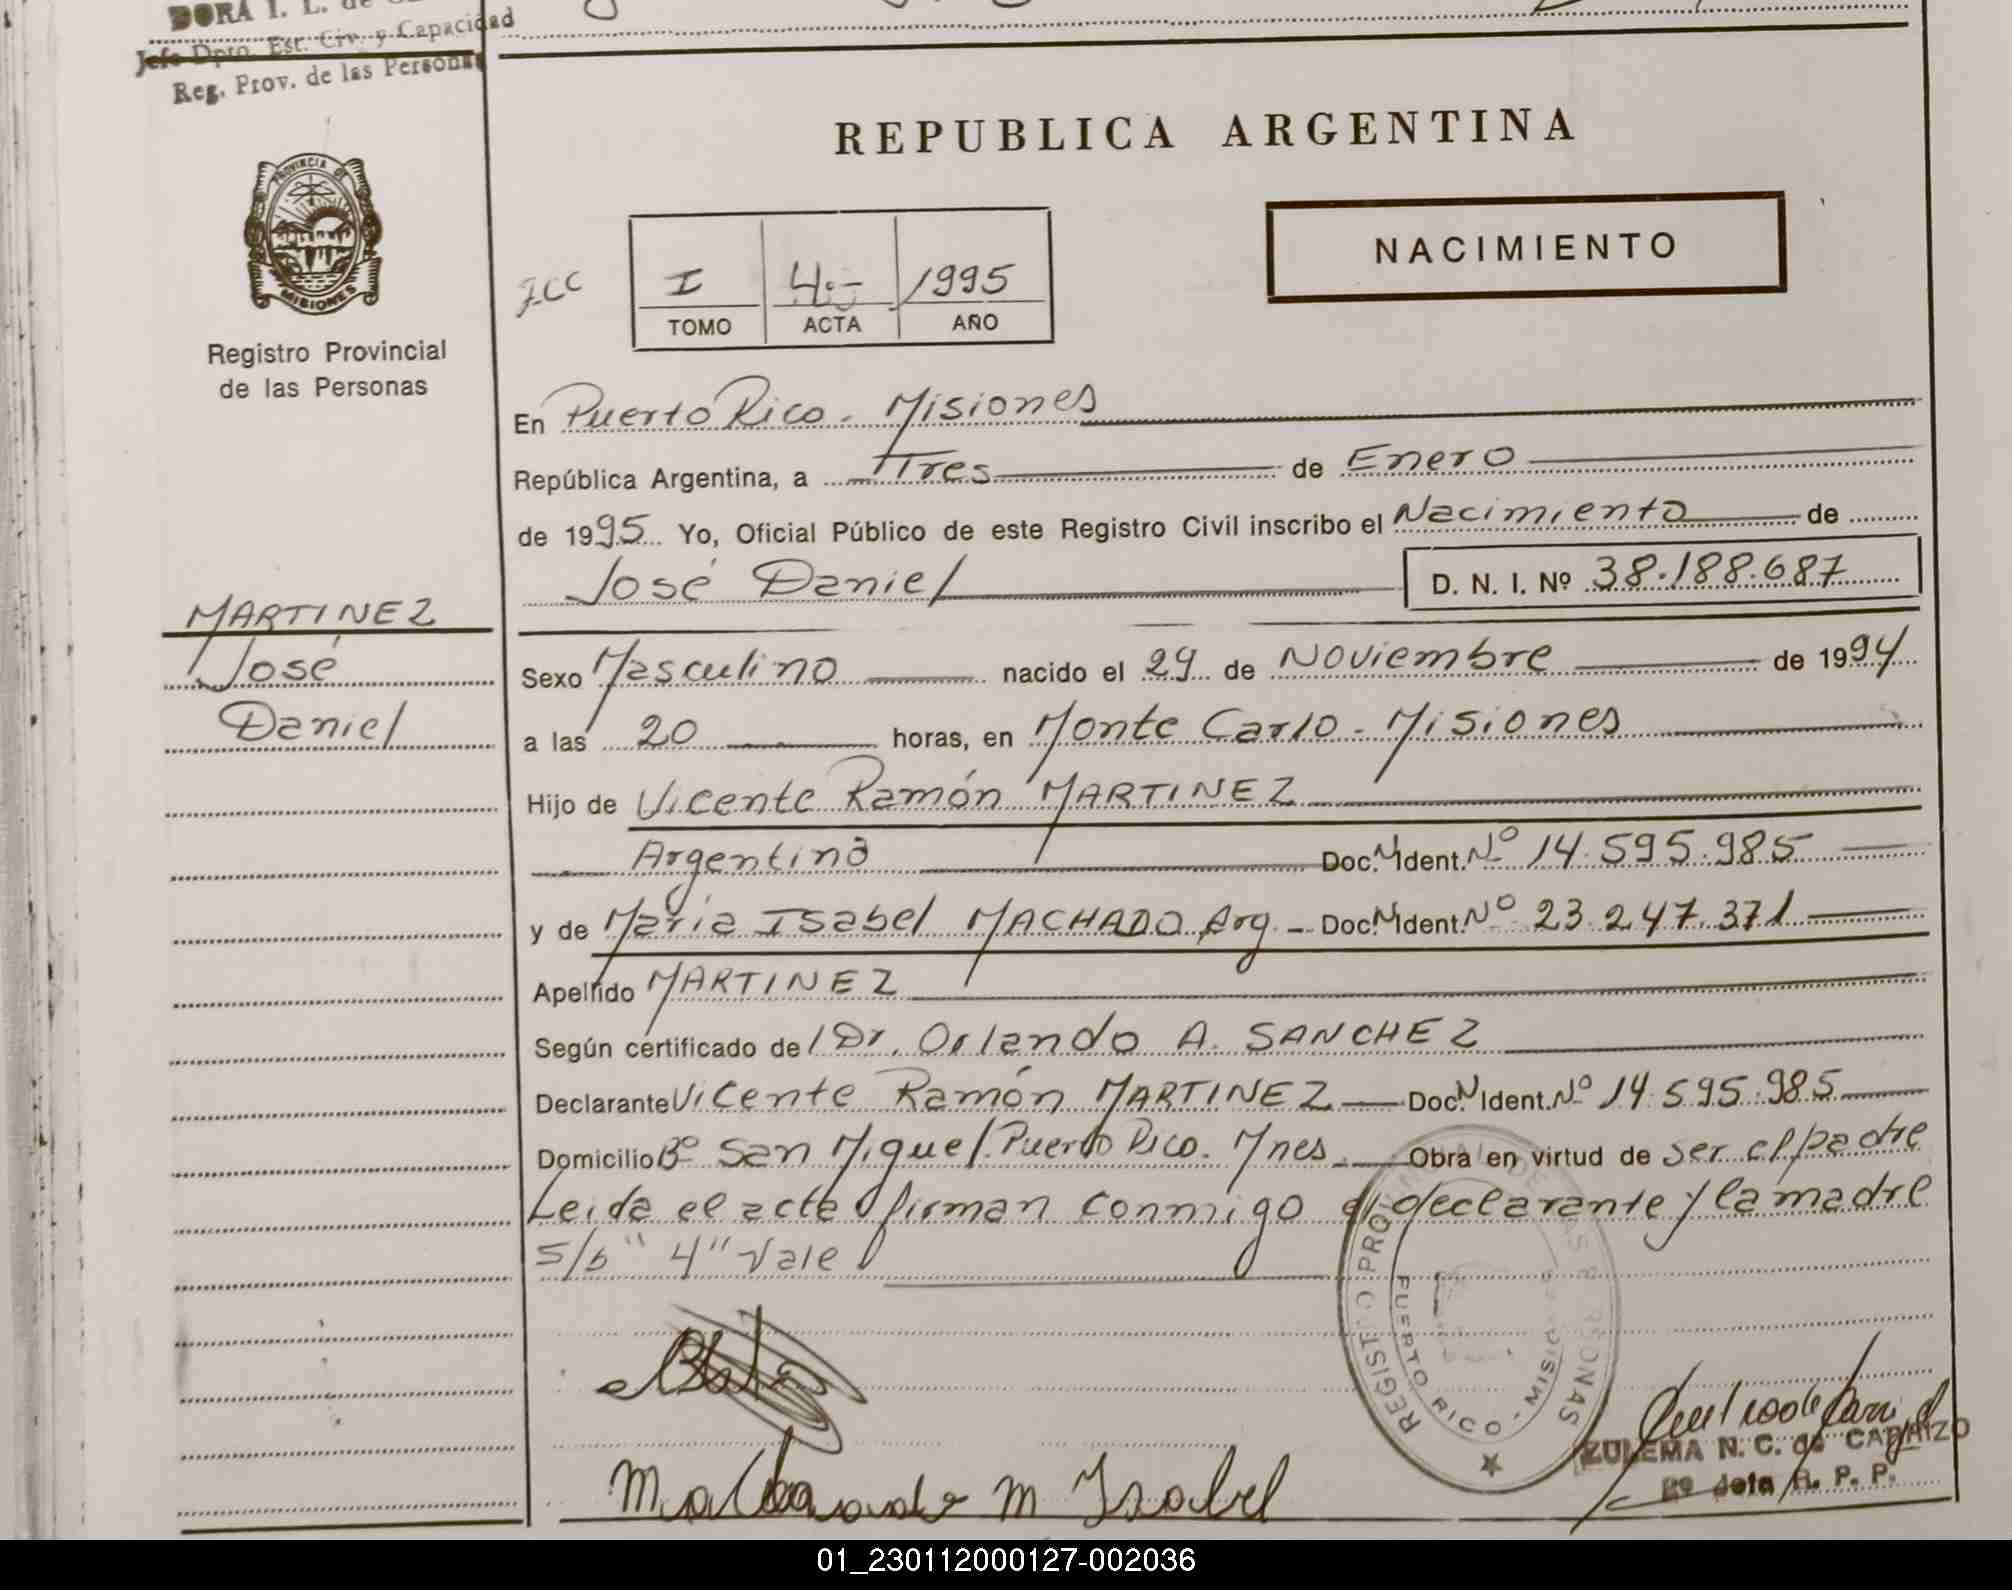 DORA I. L. de
Jefe Dpto. Est. Civ. y Capacidad
Reg. Prov. de las Personas
REPUBLICA ARGENTINA
NACIMIENTO
PROVINCIA DE
MISIONES
Registro Provincial
de las Personas
I 4.- 1995
TOMO ACTA AÑO
En Puerto Rico - Misiones
República Argentina, a Tres de Enero
de 1995 Yo, Oficial Público de este Registro Civil inscribo el Nacimiento de
José Daniel D. N. I. Nº 38.188.687
MARTINEZ
José
Daniel
Sexo Masculino nacido el 29 de Noviembre de 1994
a las 20 horas, en Monte Carlo - Misiones
Hijo de Vicente Ramón MARTINEZ
Argentino Doc. N. Ident. Nº 14.595.985
y de María Isabel MACHADO Arg. - Doc. N. Ident. Nº 23.247.371
Apellido MARTINEZ
Según certificado de Dr. Orlando A. SANCHEZ
Declarante Vicente Ramón MARTINEZ Doc. N. Ident. Nº 14.595.985
Domicilio Bº San Miguel. Puerto Rico. Mnes. Obra en virtud de ser el padre
Leida el acta firman conmigo el declarante y la madre
S/b "4" Vale
REGISTRO PROVINCIAL DE LAS PERSONAS
PUERTO RICO - MISIONES
Machado M Isabel
ZULEMA N. C. de CARRIZO
R. P. P.
01_230112000127-002036